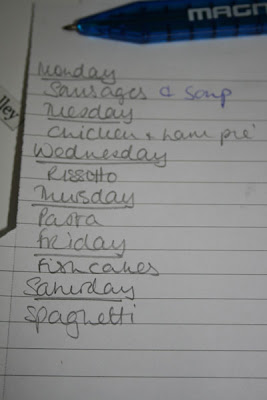 MAGN
lley
Monday
Sausages & Soup
Tuesday
Chicken & ham pie
Wednesday
Rissotto
Thursday
Pasta
Friday
Fishcakes
Saturday
Spaghetti